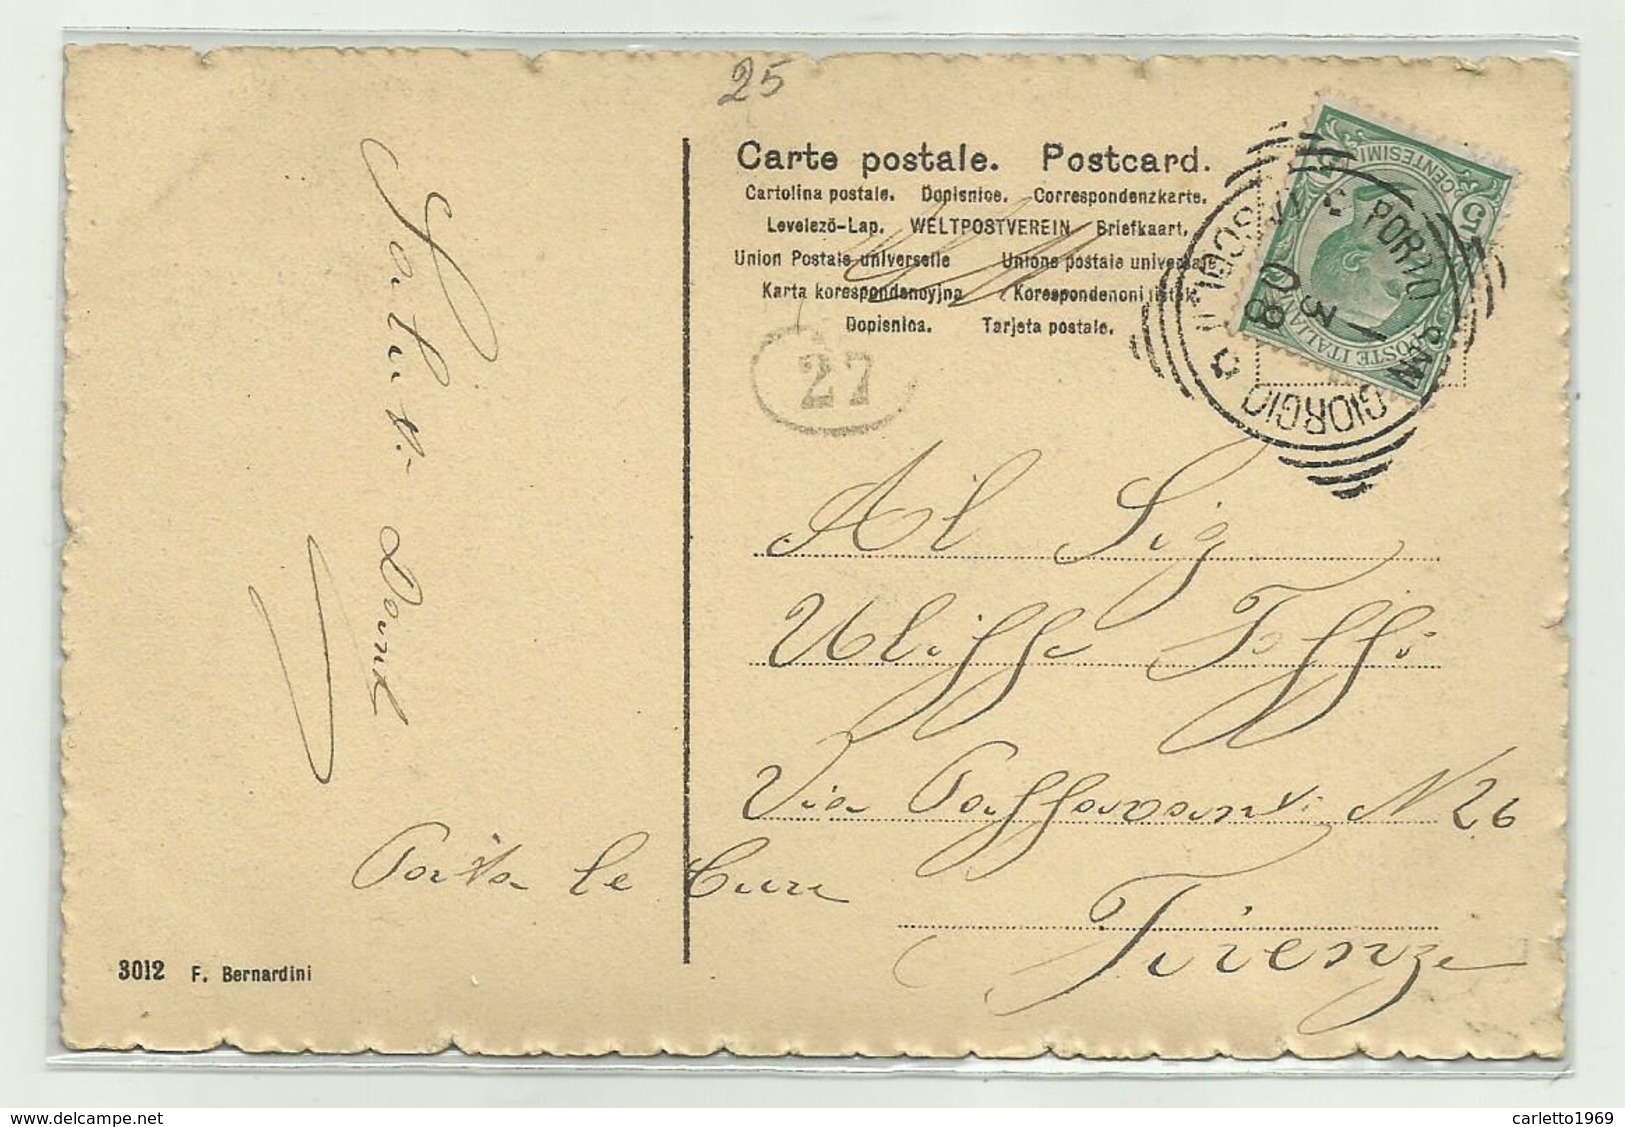 25
Carte postale. Postcard.
Cartolina postale. Dopisnice. Correspondenzkarte.
Levelező-Lap. WELTPOSTVEREIN Briefkaart.
Union Postale universelle Unione postale universale
Karta korespondencyjna Korespondencni listek
Dopisnica. Tarjeta postale.
27
PORTO
GIORGIO
3
08
CENTESIMI
POSTE ITALIANE
Al Sig
Ulisse Toffi
Via Passavanti N 26
Porta le Cure
Firenze
Saluti
3012 F. Bernardini
delcampe.net
carletto1969